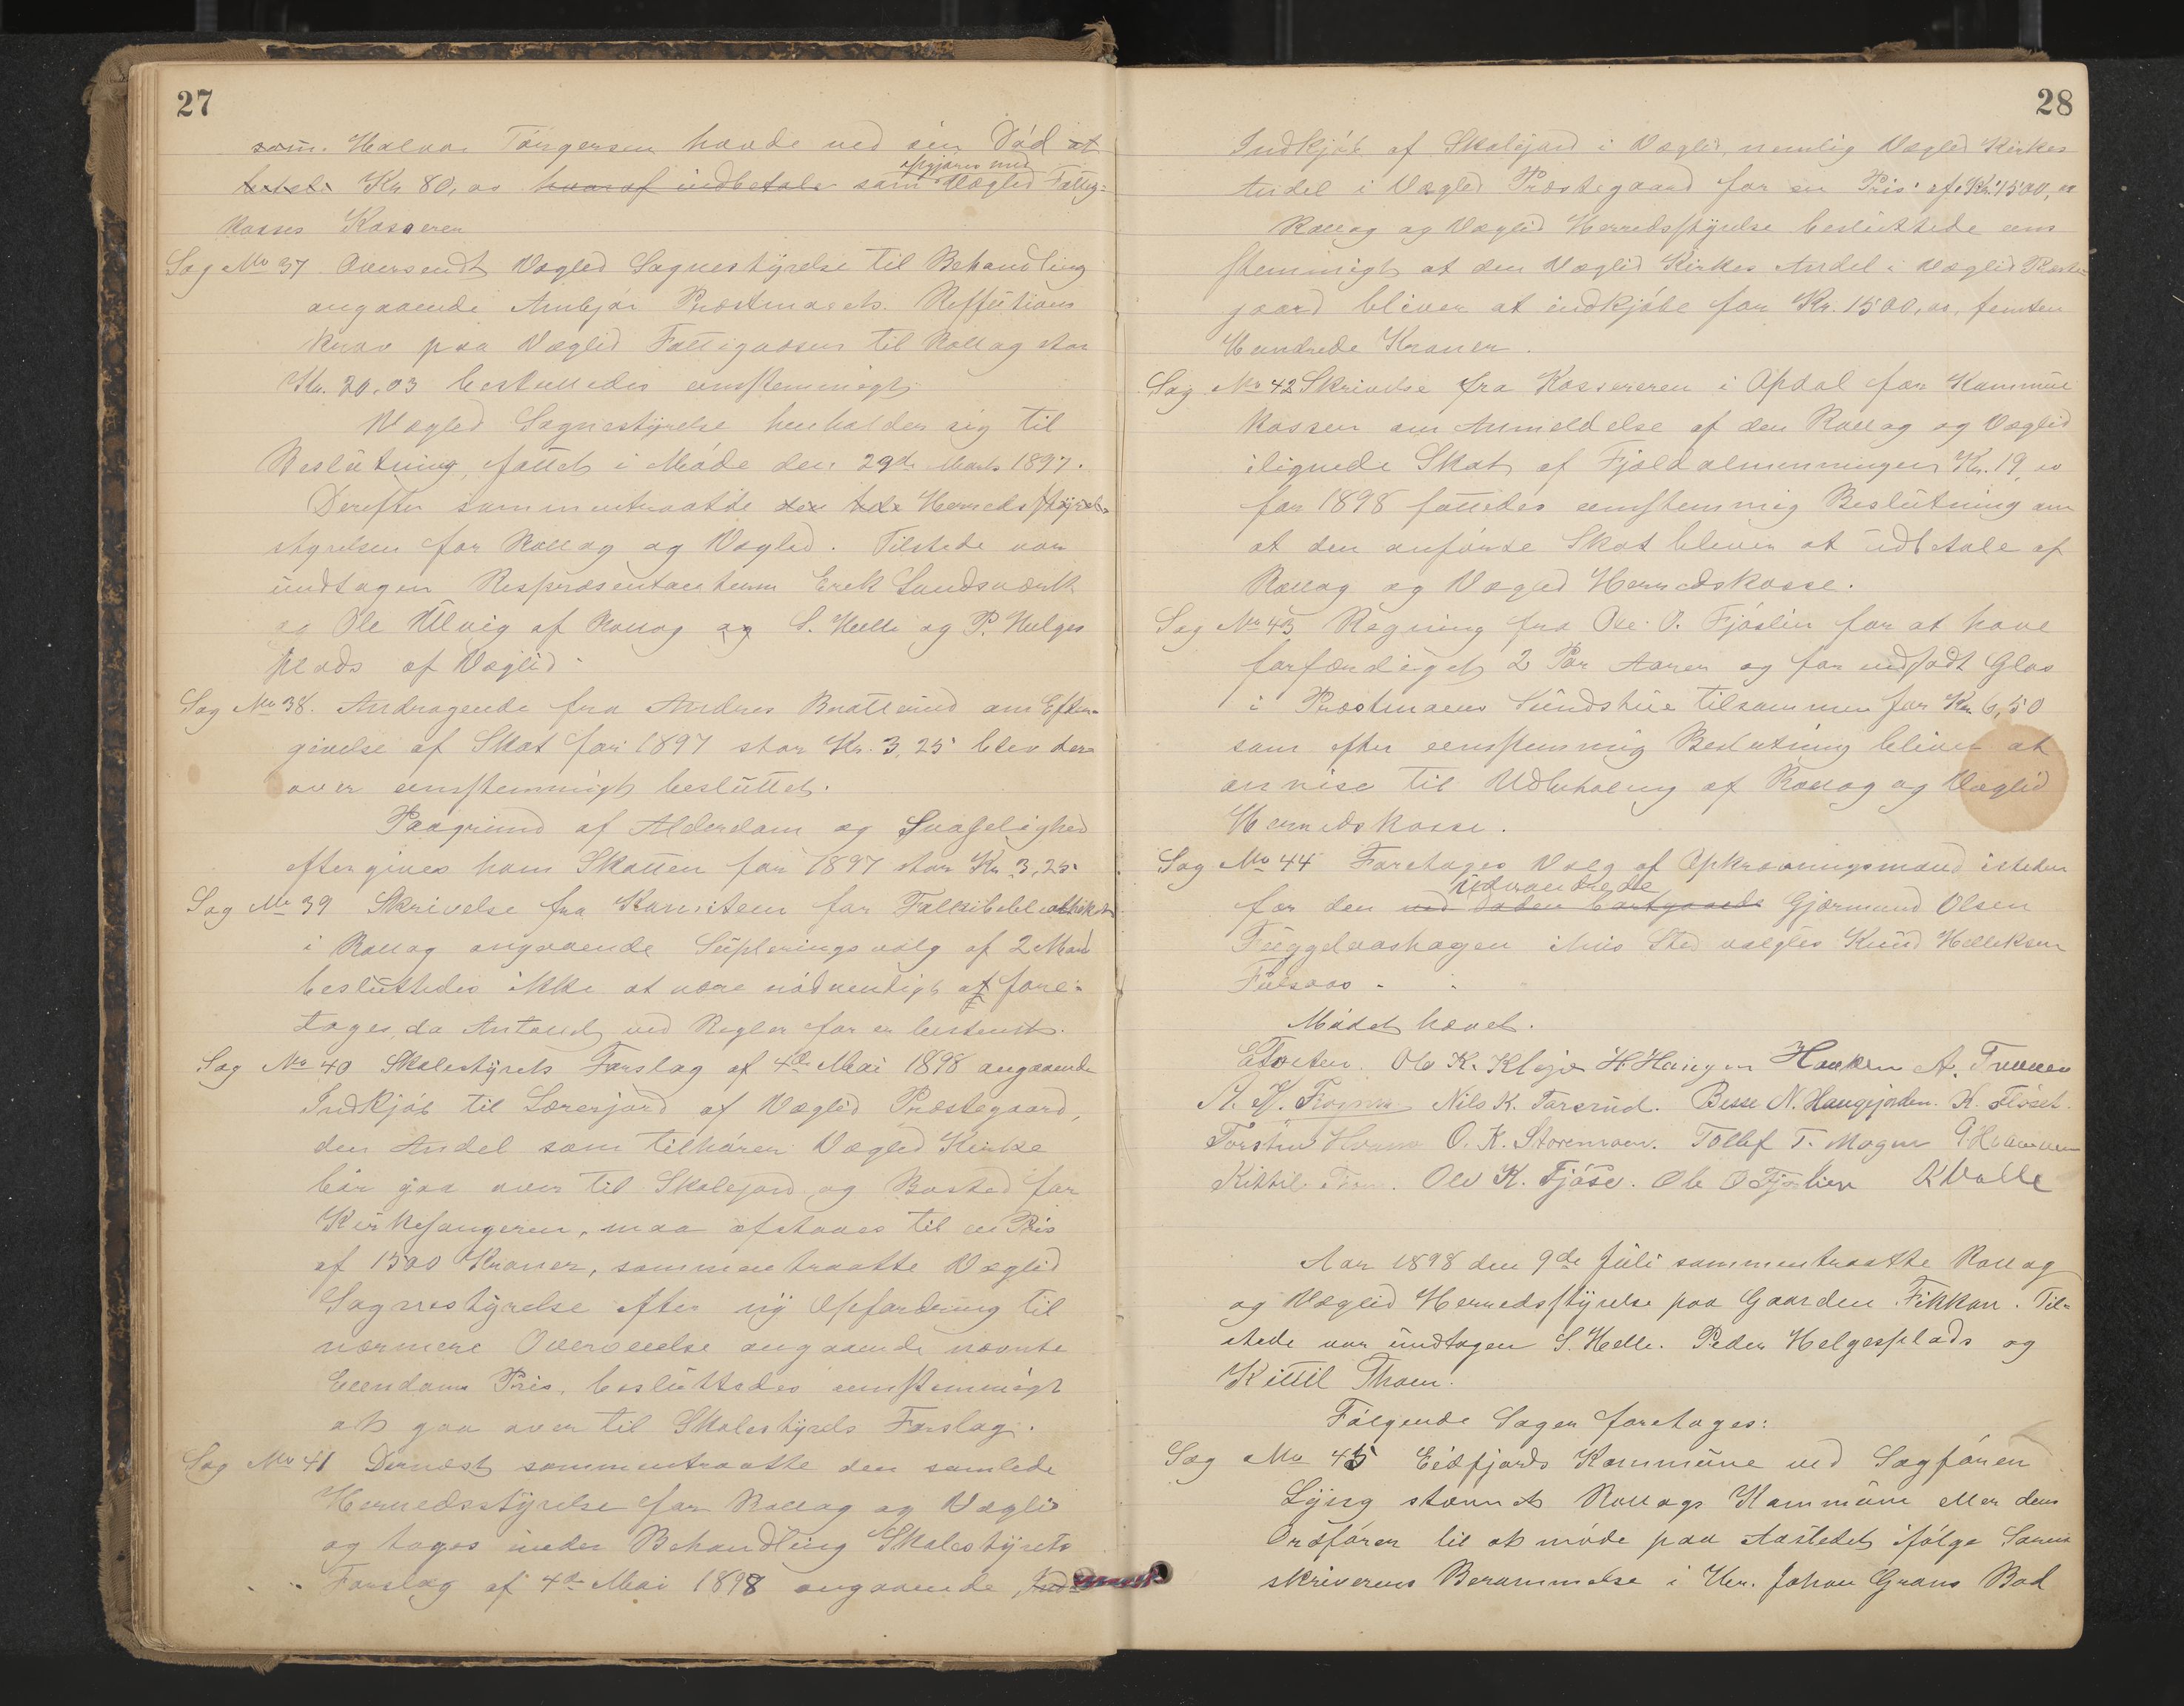 27
som. Halvor Torgersen havde ved sin Død at
betale Kr 80,00 hvoraf indbetale som afgjøres med Væglid Fattig-
kasses Kasserer
Sag No 37. Oversendt Væglid Sognestyrelse til Behandling
angaaende Anbjør Præstmoens Reffutions
krav paa Væglid Fattigvæsen til Rollag stor
Kr. 20,03 besluttedes eenstemmigt
Væglid Sognestyrelse henholder sig til
Beslutning, fattet i Møde den 29de Marts 1897.
Derefter sammentraatte den Herredsstyrel
styrelsen for Rollag og Væglid. Tilstede var
undtagen Respræsentanterne Erek Sandsværk
og Ole Ulvig af Rollag og S. Helle og P. Helges
plads af Væglid.
Sag No 38. Andragende fra Andres Bratterud om Efter-
givelse af Skat for 1897 stor Kr. 3,25 blev der-
over eenstemmigt besluttet.
Paagrund af Alderdom og Svagelighed
eftergives ham Skatten for 1897 stor Kr 3,25
Sag No 39 Skrivelse fra Komiteen for Falkibibliothiket
i Rollag angaaende Supleringsvalg af 2 Mænd
besluttedes ikke at være nødvendigt at fore-
tages, da Antallet ved Regler for er bestemt.
Sag No 40 Skolestyrets Forslag af 4de Mai 1898 angaaende
Indkjøb til Lærerjord af Væglid Præstegaard,
den Andel som tilhører Væglid Kirke
bør gaa over til Skolejord og Bosted for
Kirkesangeren, maa afstaaes til en Pris
af 1500 Kroner, sammentraatte Væglid
Sognestyrelse efter ny Opfordring til
nærmere Overveielse angaaende nævnte
Eiendoms Pris, besluttedes eenstemmigt
at gaa over til Skolestyrets Forslag.
Sag No 41 Dernæst sammentraatte den samlede
Herredsstyrelse for Rollag og Væglid
og toges under Behandling Skolestyrets
Forslag af 4de Mai 1898 angaaende Ind-
28
Indkjøb af Skolejord i Væglid, nemlig Væglid Kirkes
Andel i Væglid Præstegaard for en Pris af Kr. 1500,00
Rollag og Væglid Herredsstyrelse besluttede een
stemmigt at den Væglid Kirkes Andel i Væglid Præste-
gaard bliver at indkjøbe for Kr. 1500,00, femten
Hundrede Kroner.
Sag No 42 Skrivelse fra Kassereren i Opdal for Kommune
kassen om Anmeldelse af den Rollag og Væglid
ilignede Skat af Fjeldalmenningen Kr. 19,00
for 1898 fattedes eenstemmig Beslutning om
at den anførte Skat bliver at udbetale af
Rollag og Væglid Herredskasse.
Sag No 43 Regning fra Ole O. Fjøslin for at have
forfærdiget 2 Par Aarer og for indsadt Glas
i Præstmoens Sundstue tilsammen for Kr 6,50
som efter eenstemmig Beslutning bliver at
anvise til Udbetaling af Rollag og Væglid
Herredskasse.
Sag No 44 Foretoges Valg af Opkrævningsmand isteden
for den ved Døden bortgaaede udvandrede Gjærmund Olsen
Tuggelvashagen i hvis Sted valgtes Knud Helleksen
Fulsaas.
Mødet hævet.
EToeten. Ole K. Kleje H. Haugen Haukem A. Traaen
A. K. Nils K. Tarerud. Besse N. Haugejorden. K. Fløset.
Torstin O. K. Storemoen. Tollef T. Mogen
Kittil Traa. Ole K. Fjøse. Ole O Fjøslien K Valle
Aar 1898 den 9de Juli sammentraatte Rollag
og Væglid Herredsstyrelse paa Gaarden Fikkan. Til-
stede var undtagen S. Helle. Peder Helgesplads og
Kittil Thoen.
Følgende Sager foretages:
Sag No 45 Eidfjords Kommune ved Sagfører
Lyng stævnet Rollags Kommune eller dens
Ordfører til at møde paa Aastedet ifølge Soren
skriverens Berammelse i Hr. Johan Grans Bad